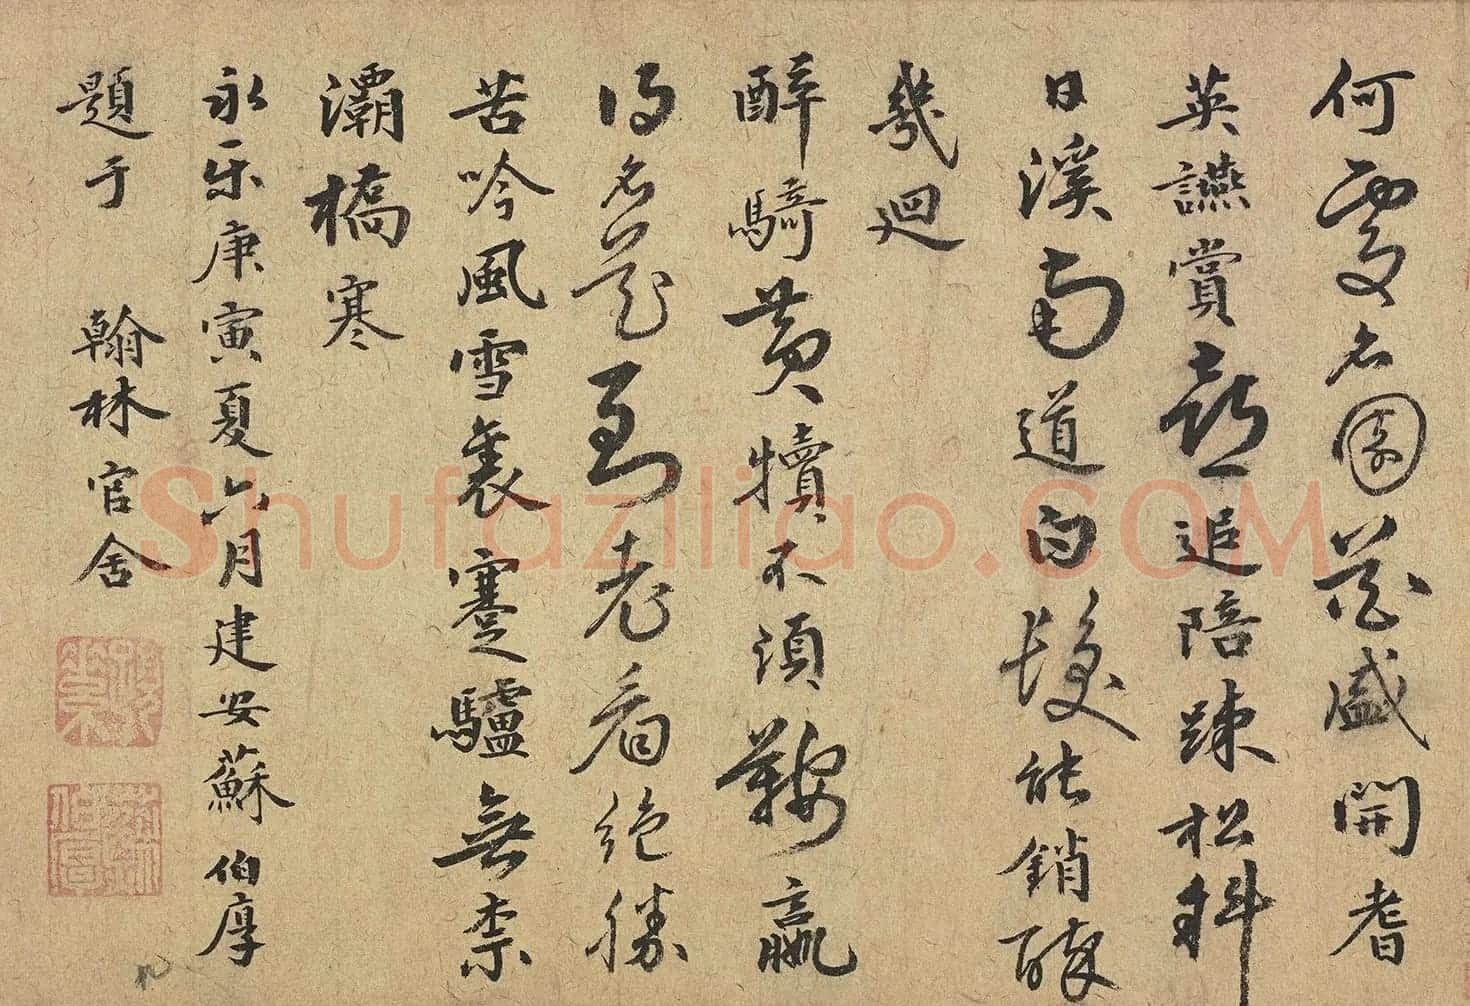 何處名園花盛開耆
英讌賞喜追陪踈松
日溪南道白髮能銷醉
幾迴
醉騎黄犢不須鞍嬴
得名花到老看絶勝
苦吟風雪裏蹇驢無柰
灞橋寒
永乐庚寅夏六月建安蘇伯厚
題于 翰林官舍
蘇伯厚
Shufaziliao.COM